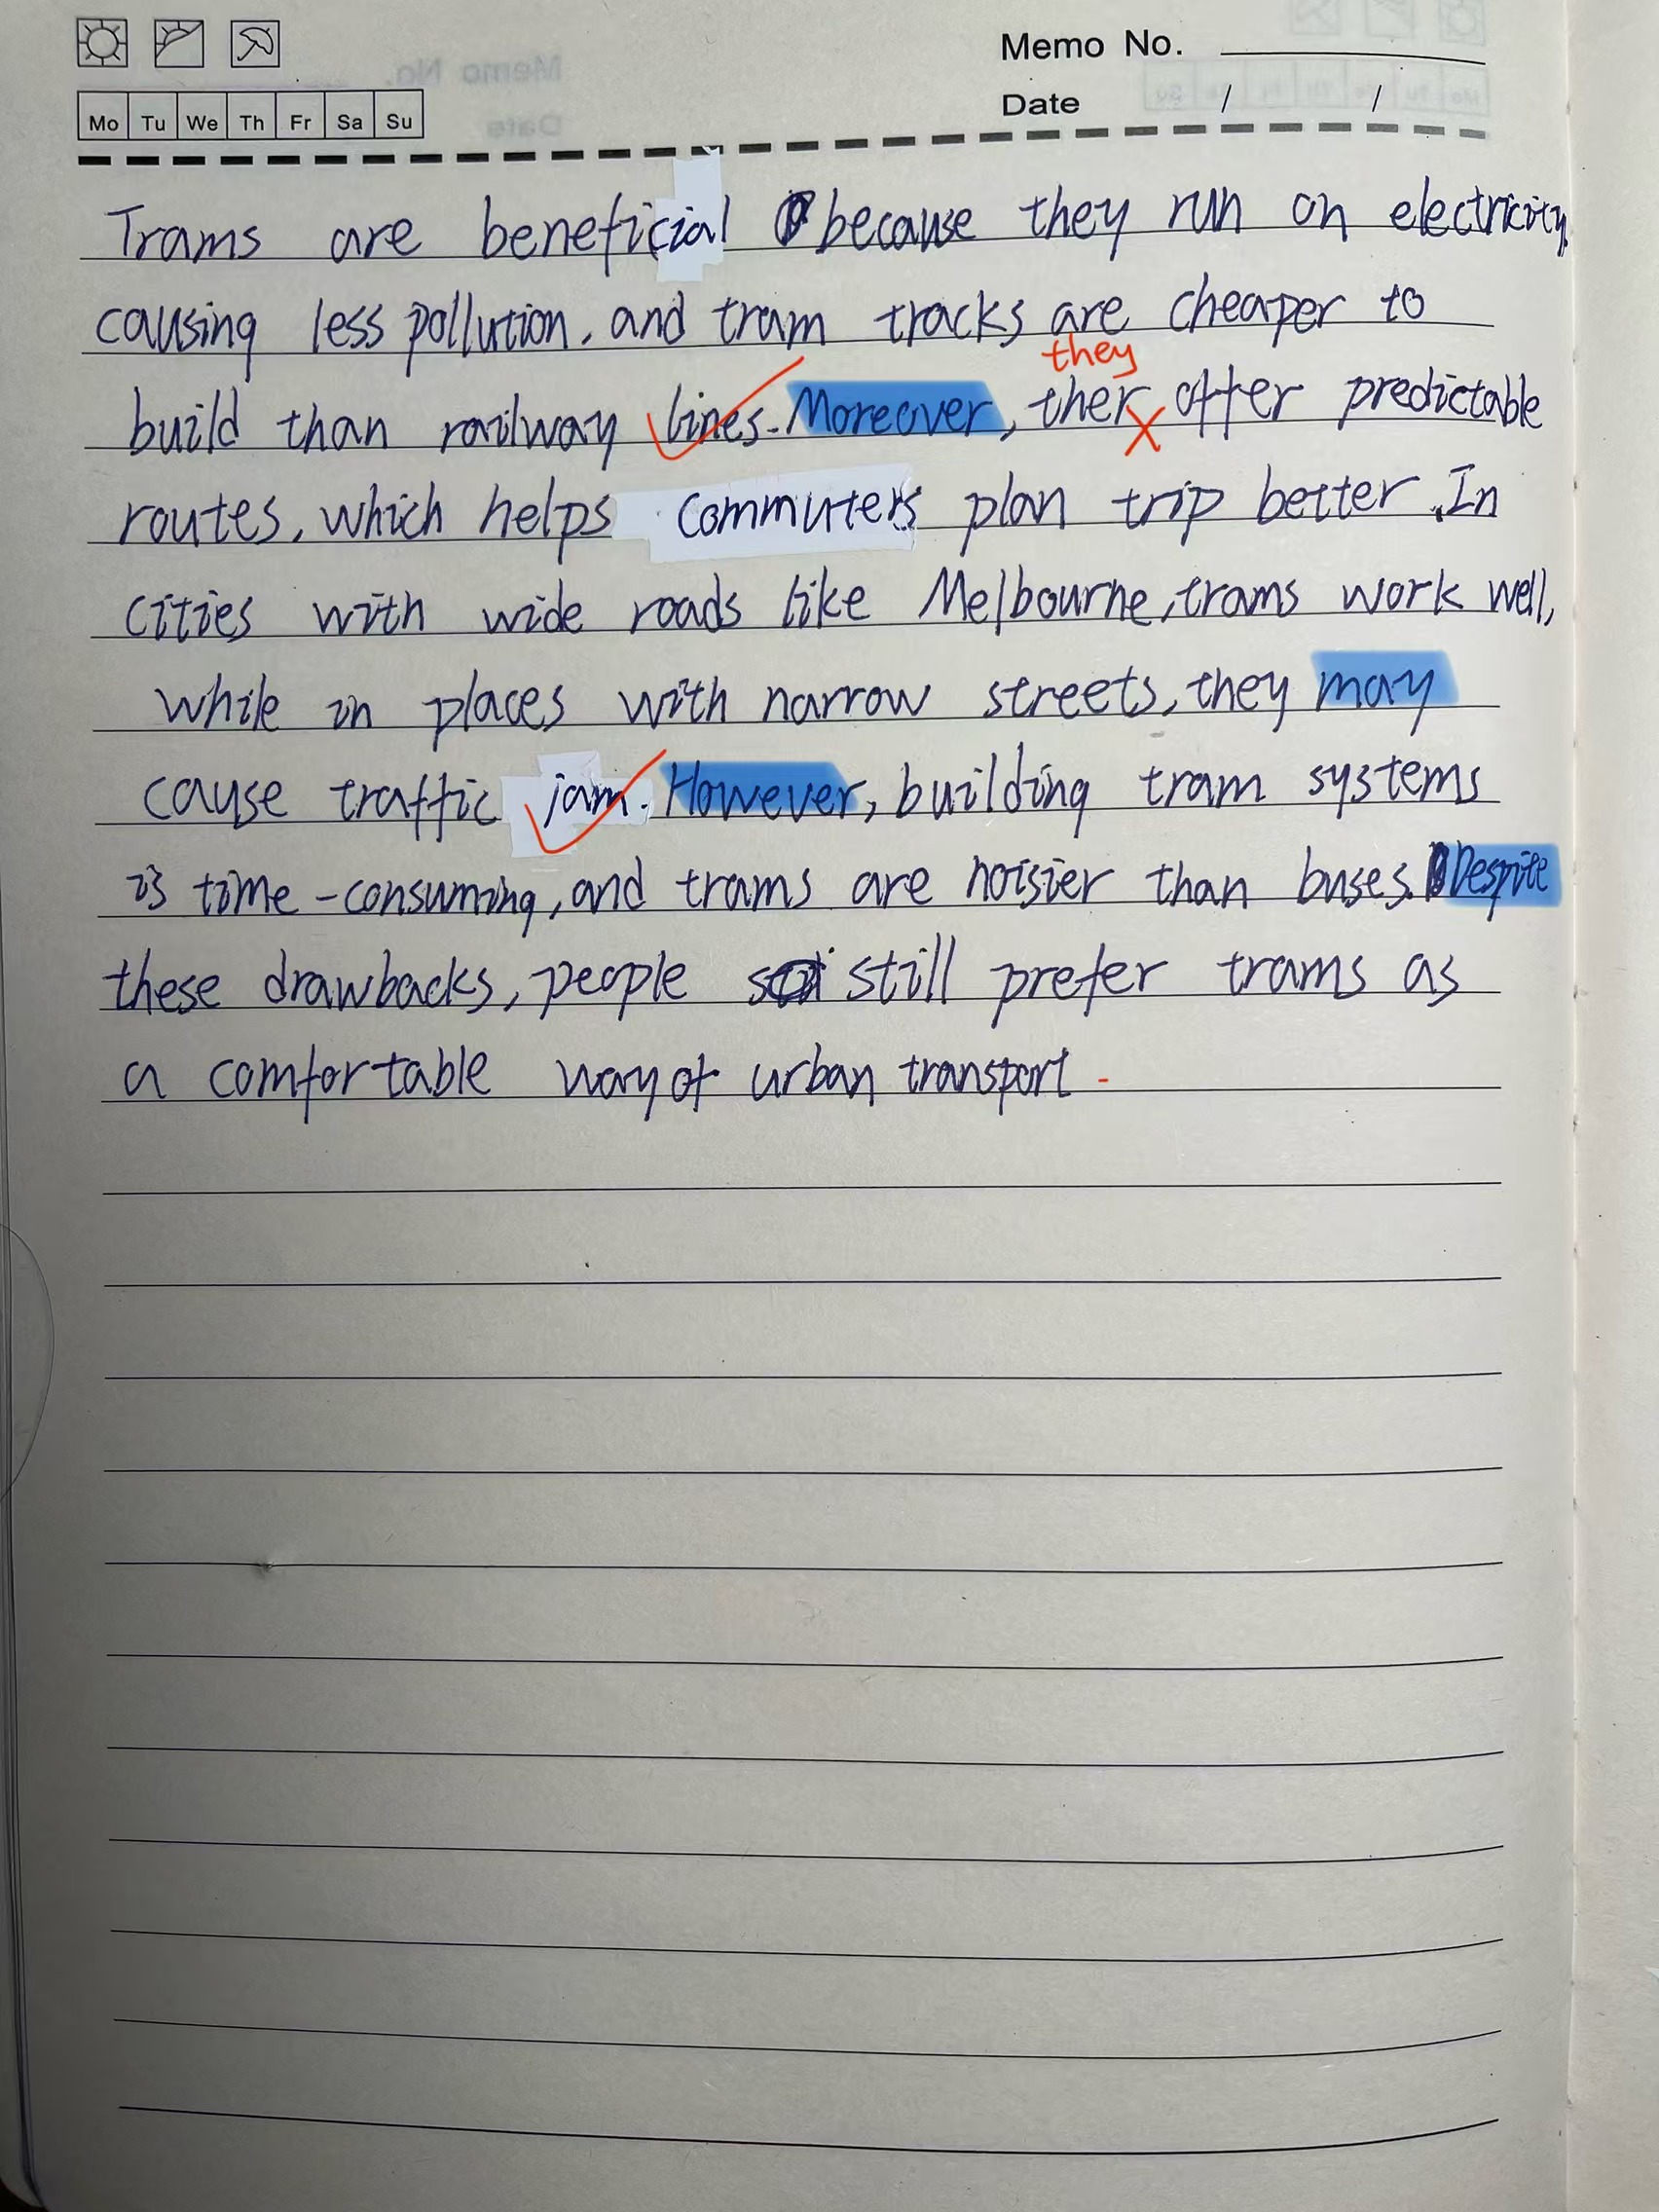 Memo No.
Mo Tu We Th Fr Sa Su
Date / /
Trams are beneficial because they run on electricity,
causing less pollution, and tram tracks are cheaper to
they
build than railway lines. Moreover, ther offer predictable
routes, which helps commuters plan trip better. In
cities with wide roads like Melbourne, trams work well,
while in places with narrow streets, they may
cause traffic jam. However, building tram systems
is time-consuming, and trams are noisier than buses. Despite
these drawbacks, people still prefer trams as
a comfortable way of urban transport.